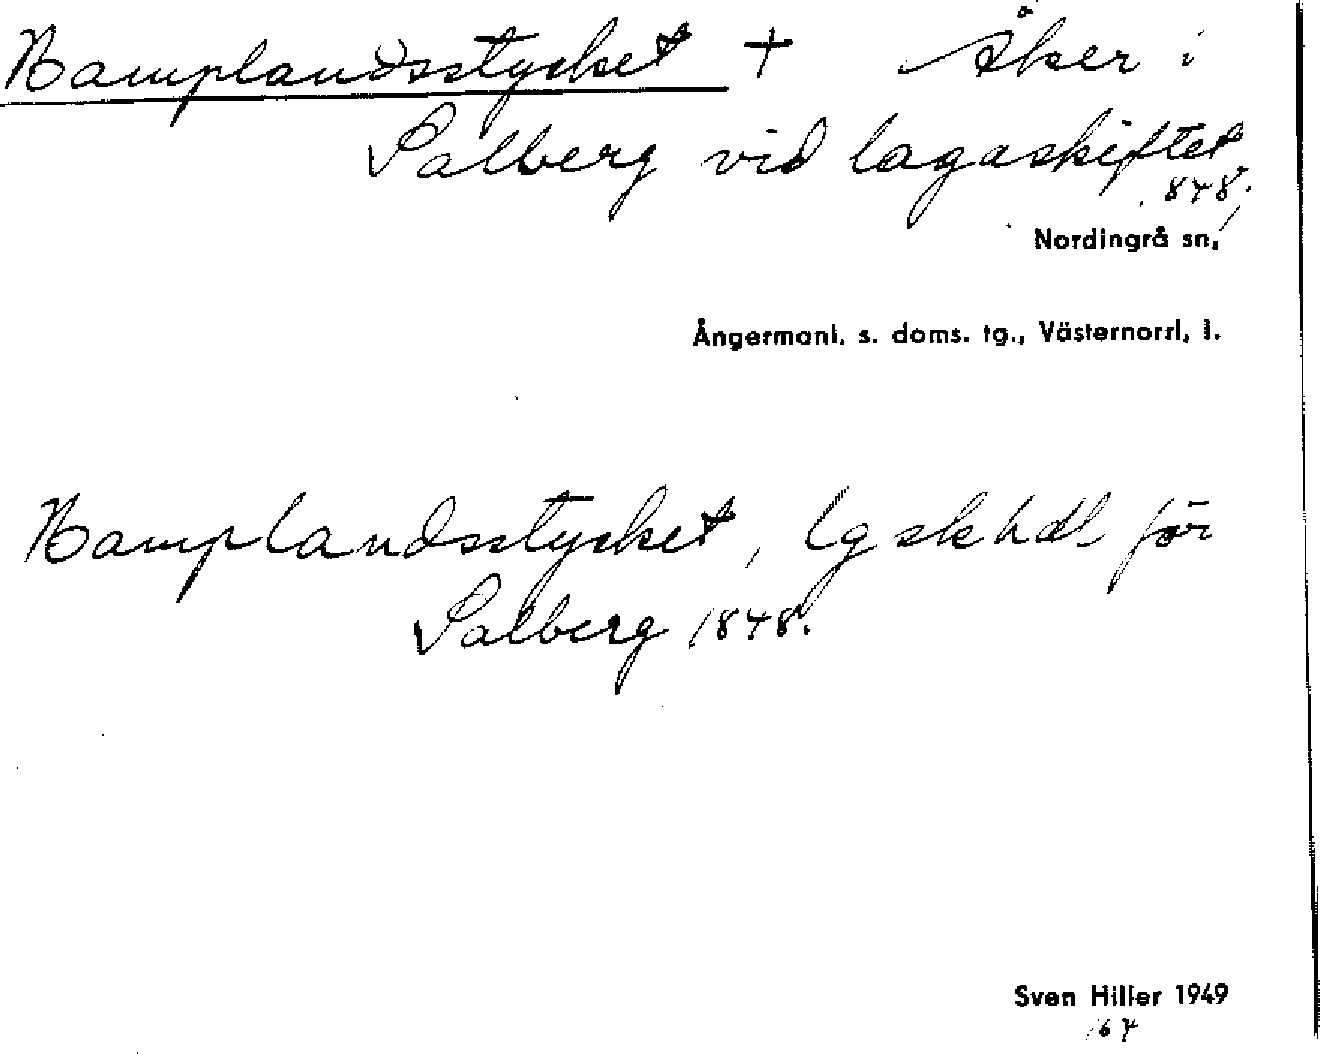 Hamplandsstycket + åker i
Salberg vid lagaskiftet
1848;
Nordingrå sn,
Ångermanl. s. doms. tg., Västernorrl, l.
Hamplandsstycket, lgskhdl för
Salberg 1848.
Sven Hiller 1949